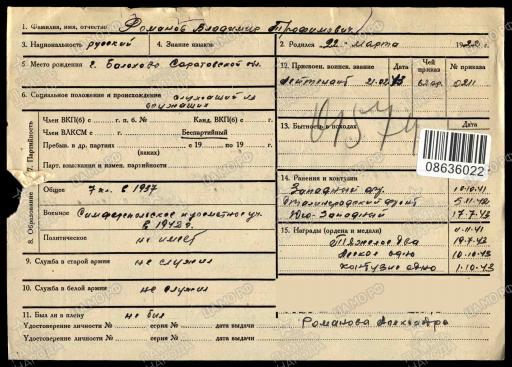 1. Фамилия, имя, отчество Романов Владимир Трофимович
3. Национальность русский 4. Знание языков
2. Родился 22 марта 1922 г.
5. Место рождения г. Балаково Саратовской
12. Присвоен. воинск. звание Дата Чей приказ № приказа
Лейтенант 21.02.43 0211
6. Социальное положение и происхождение служащий из
служащих
7. Партийность
Член ВКП(б) с г. п. б. № Канд. ВКП(б) с г.
Член ВЛКСМ с г. Беспартийный
Пребыв. в др. партиях с 19 по 19 г.
(каких)
Парт. взыскания и измен. партийности
13. Бытность в походах Дата
08636022
8. Образование
Общее 7 кл. в 1937
Военное Симферопольское
в 1942 г.
Политическое не имеет
14. Ранения и контузии
Западный 10.10.41
Сталинградский фронт 5.11.42
Юго-Западный 17.7.43
15. Награды (ордена и медали)
Тяжелое два 19.7.43
Легкое одно 10.10.43
контузия одно 1.10.43
9. Служба в старой армии не служил
10. Служба в белой армии не служил
11. Был ли в плену не был
Удостоверение личности № серия № дата выдачи
Удостоверение личности № серия № дата выдачи
Романова Александра
ЦАМО.РФ